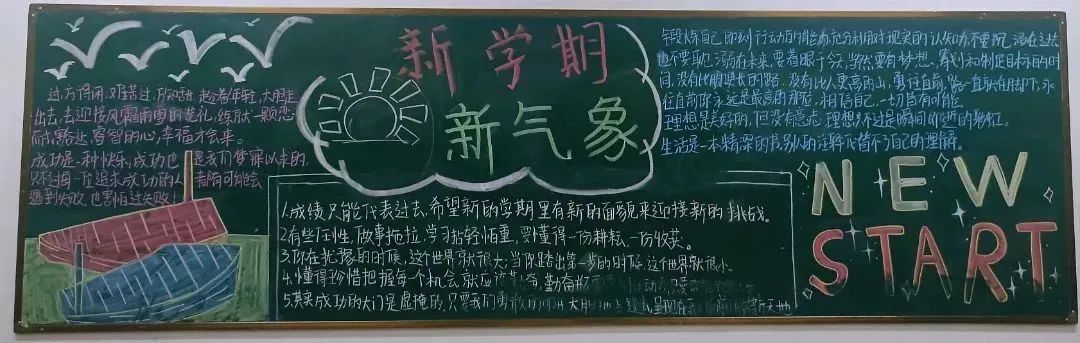 新学期
新气象
出去,去迎接风霜雨雪的洗礼,练就一颗忍
而,豁达,睿智的心,幸福才会来。
成功是一种快乐,成功也是我们梦寐以来的,
只不过每一位追求成功的人都有可能会
遇到失败,也害怕过失败!
1.成绩只能代表过去,希望新的学期里有新的面貌来迎接新的挑战。
2.有些任性,做事拖拉,学习拈轻怕重,要懂得一份耕耘,一份收获。
3.你在犹豫的时候,这个世界就很大;当你踏出第一步的时候,这个世界就很小。
4.懂得珍惜把握每个机会就应该
5.其实成功的大门是虚掩的,只要我们勇敢
锻炼自己即刻行动的能力.充分利用对现实的认知力.不要沉浸在过去
也不要耽溺在未来,要着眼于今天.当然要有梦想、筹划和制定目标的时
间,没有比脚更长的路,没有比人更高的山,勇往直前,路一直就在脚下,永
往直前你永远是最高的那座,相信自己,一切皆有可能
理想是美好的,但没有意志,理想不过是瞬间即逝的彩虹。
生活是一本精深的书,别人的注释代替不了自己的理解。
NEW
START